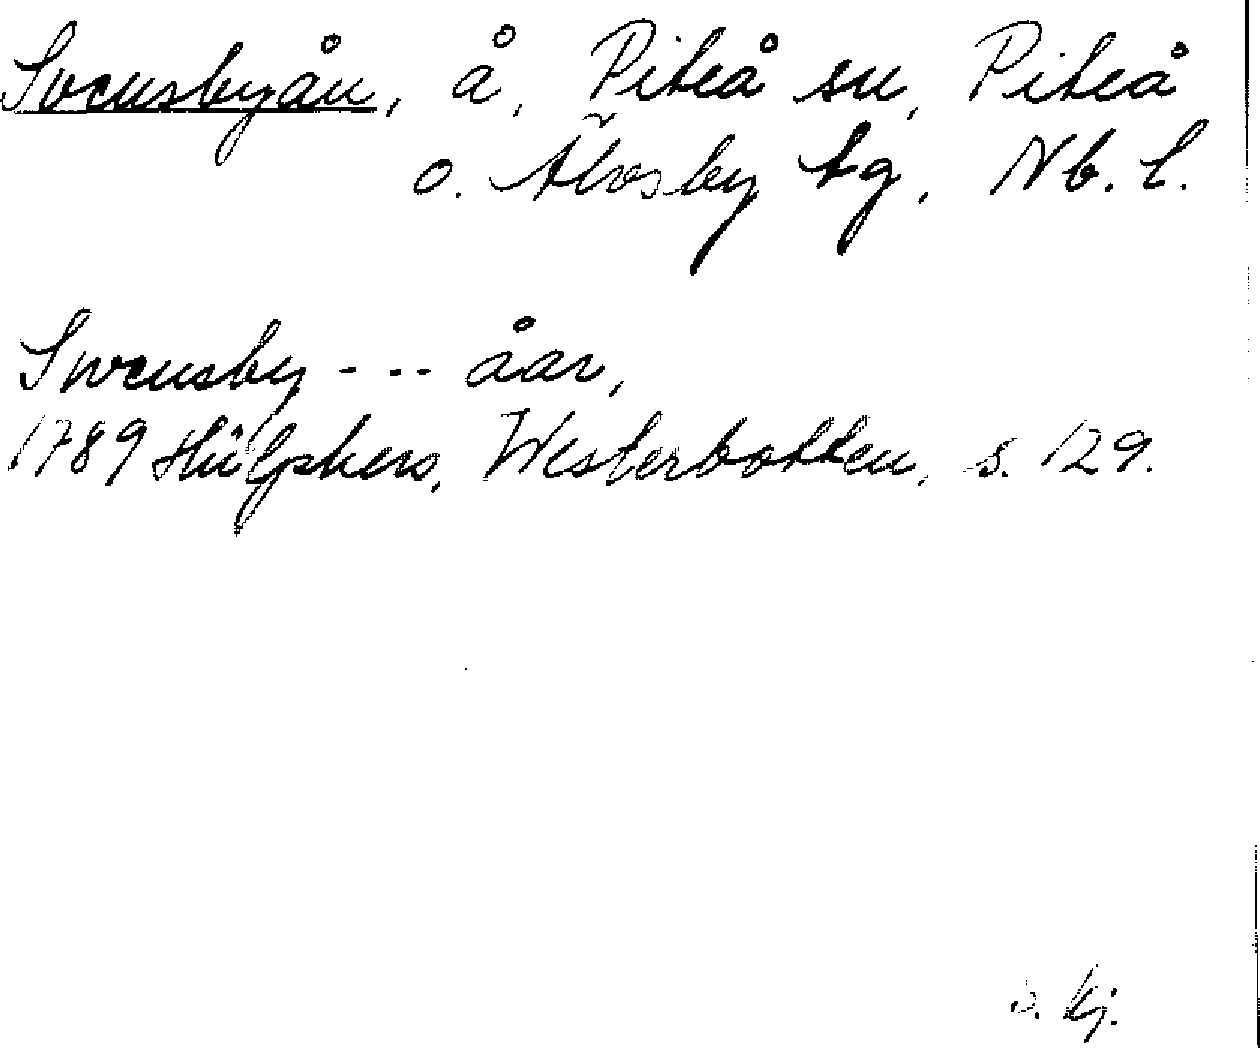 Svensbyån, å, Piteå sn, Piteå
o. Älvsby tg, Nb. l.
Swensby --- åar,
1789 Hülphers, Westerbotten, s. 129.